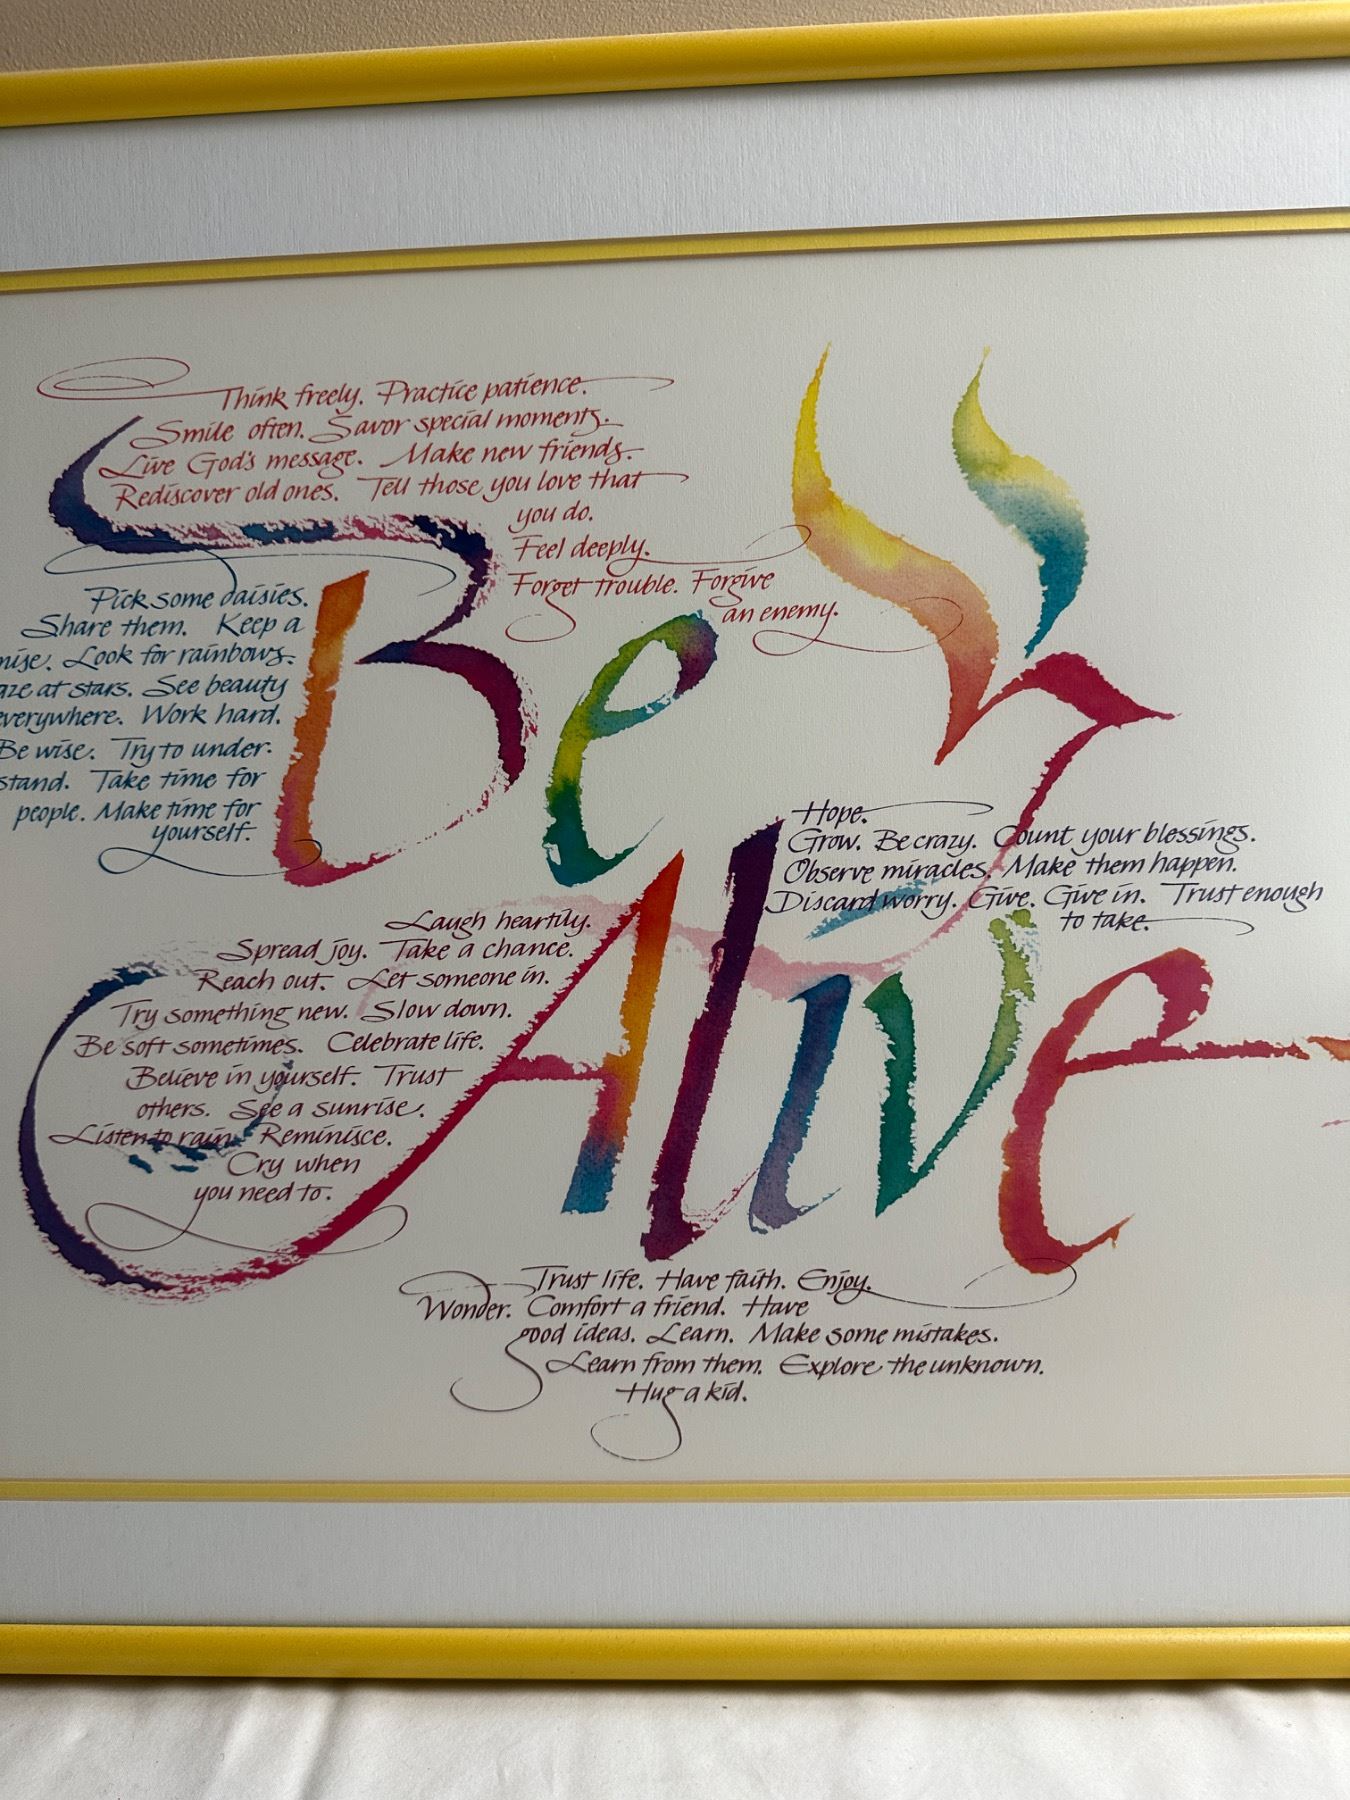 Think freely. Practice patience.
Smile often. Savor special moments.
Live God's message. Make new friends.
Rediscover old ones. Tell those you love that
you do.
Feel deeply.
Forget trouble. Forgive
an enemy.
Be
Pick some daisies.
Share them. Keep a
Look for rainbows.
at stars. See beauty
everywhere. Work hard.
Be wise. Try to under-
stand. Take time for
people. Make time for
yourself.
Hope.
Grow. Be crazy. Count your blessings.
Observe miracles. Make them happen.
Discard worry. Give. Give in. Trust enough
to take.
Alive
Laugh heartily.
Spread joy. Take a chance.
Reach out. Let someone in.
Try something new. Slow down.
Be soft sometimes. Celebrate life.
Believe in yourself. Trust
others. See a sunrise.
Listen to rain. Reminisce.
Cry when
you need to.
Trust life. Have faith. Enjoy.
Wonder. Comfort a friend. Have
good ideas. Learn. Make some mistakes.
Learn from them. Explore the unknown.
Hug a kid.